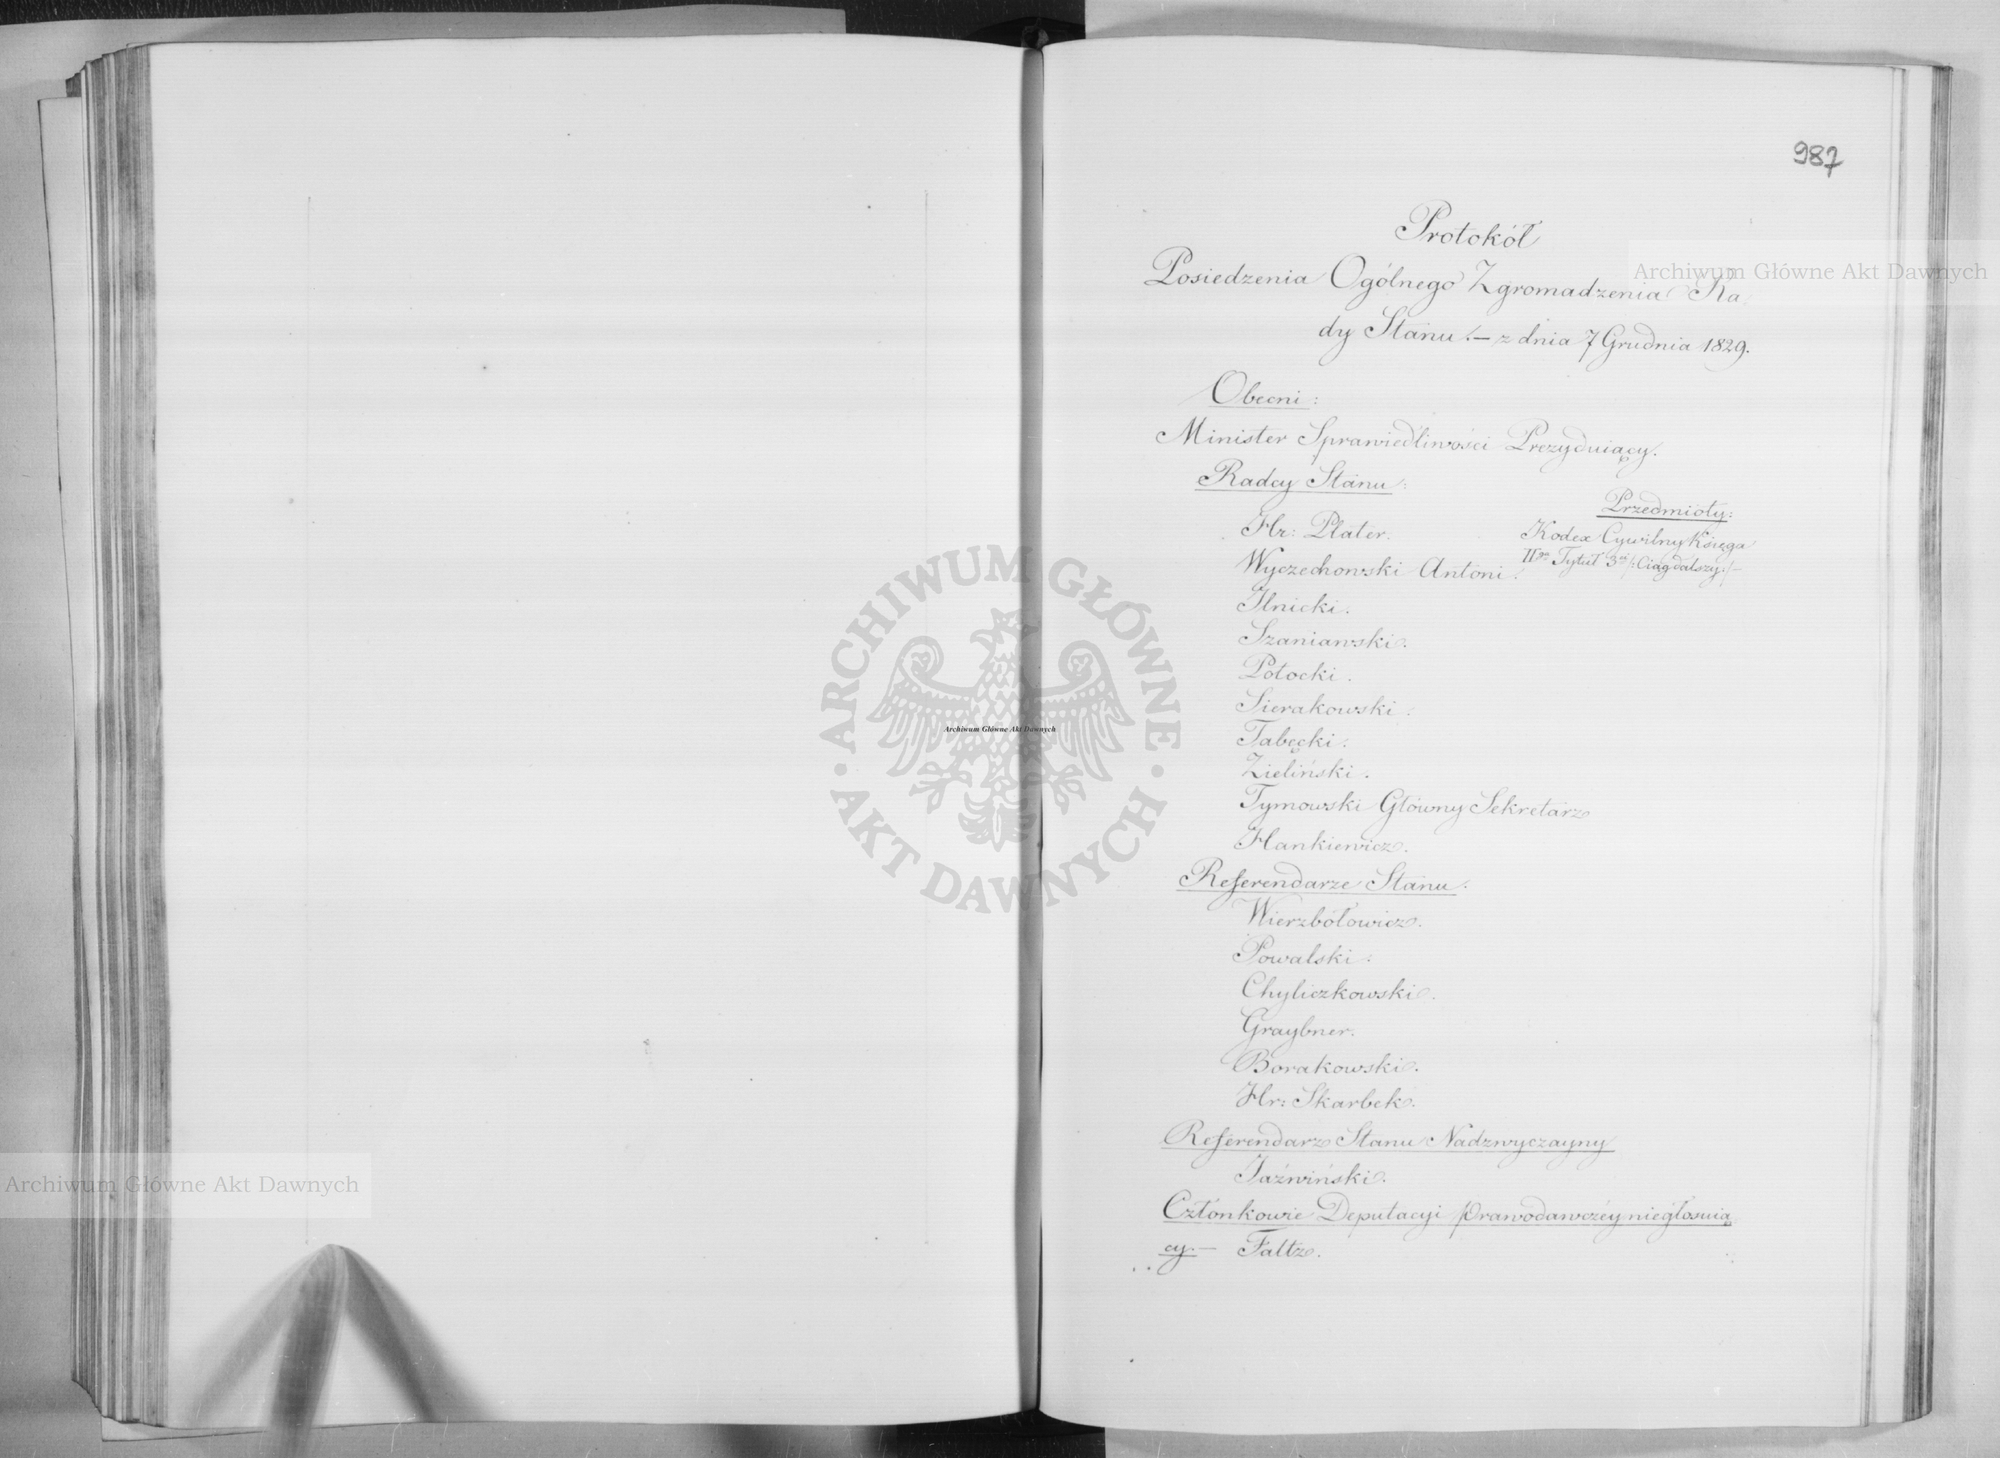 987
Protokół
Posiedzenia Ogólnego Zgromadzenia Ra
dy Stanu.— z dnia 7 Grudnia 1829.
Obecni:
Minister Sprawiedliwości Prezyduiący.
Radcy Stanu:
Hr: Plater.
Wyczechowski Antoni.
Ilnicki.
Szaniawski.
Potocki.
Sierakowski.
Tabęcki.
Zieliński.
Tymowski Główny Sekretarz
Hankiewicz.
Przedmioty:
Kodex Cywilny Księga
IIga Tytuł 3ci /:Ciąg dalszy:/—
Referendarze Stanu:
Wierzbołowicz.
Powalski.
Chyliczkowski.
Graybner.
Borakowski.
Hr: Skarbek.
Referendarz Stanu Nadzwyczayny
Jaźwiński.
Członkowie Deputacyi Prawodawczéy niegłosuią
cy.— Faltz.
Archiwum Główne Akt Dawnych
Archiwum Główne Akt Dawnych
Archiwum Główne Akt Dawnych
ARCHIWUM GŁÓWNE
AKT DAWNYCH